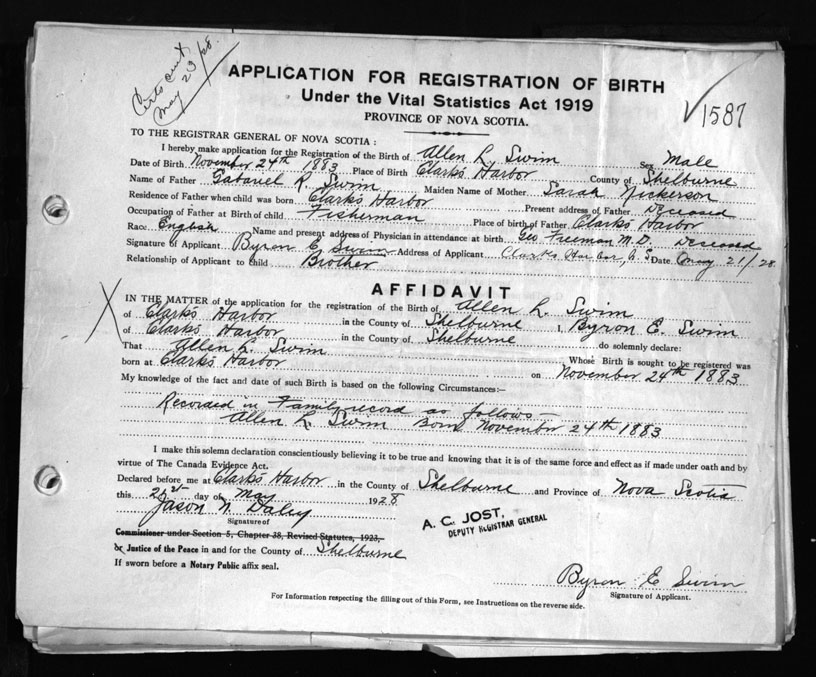 Certs out
May 23/28.
APPLICATION FOR REGISTRATION OF BIRTH
Under the Vital Statistics Act 1919
PROVINCE OF NOVA SCOTIA.
1587
TO THE REGISTRAR GENERAL OF NOVA SCOTIA:
I hereby make application for the Registration of the Birth of Allen L. Swim Sex Male
Date of Birth November 24th 1883 Place of Birth Clarks Harbor County of Shelburne
Name of Father Gabariel K. Swim Maiden Name of Mother Sarah Nickerson
Residence of Father when child was born Clarks Harbor Present address of Father Deceased
Occupation of Father at Birth of child Fisherman Place of birth of Father Clarks Harbor
Race English Name and present address of Physician in attendance at birth Geo Freeman M.D. Deceased
Signature of Applicant Byron E Swim Address of Applicant Clarks Harbor, N.S Date May 21/28
Relationship of Applicant to child Brother
AFFIDAVIT
IN THE MATTER of the application for the registration of the Birth of Allen L. Swim
of Clarks Harbor in the County of Shelburne I, Byron E. Swim
of Clarks Harbor in the County of Shelburne do solemnly declare:
That Allen L. Swim Whose Birth is sought to be registered was
born at Clarks Harbor on November 24th 1883
My knowledge of the fact and date of such Birth is based on the following Circumstances:—
Recorded in Family record as follows—
Allen L. Swim Born November 24th 1883
I make this solemn declaration conscientiously believing it to be true and knowing that it is of the same force and effect as if made under oath and by
virtue of The Canada Evidence Act.
Declared before me at Clarks Harbor in the County of Shelburne and Province of Nova Scotia
this 21st day of May 1928
Jason N. Daley
Signature of
A. C. JOST,
DEPUTY REGISTRAR GENERAL
Commissioner under Section 5, Chapter 38, Revised Statutes, 1923,
or Justice of the Peace in and for the County of Shelburne
If sworn before a Notary Public affix seal.
Byron E Swim
Signature of Applicant.
For Information respecting the filling out of this Form, see Instructions on the reverse side.